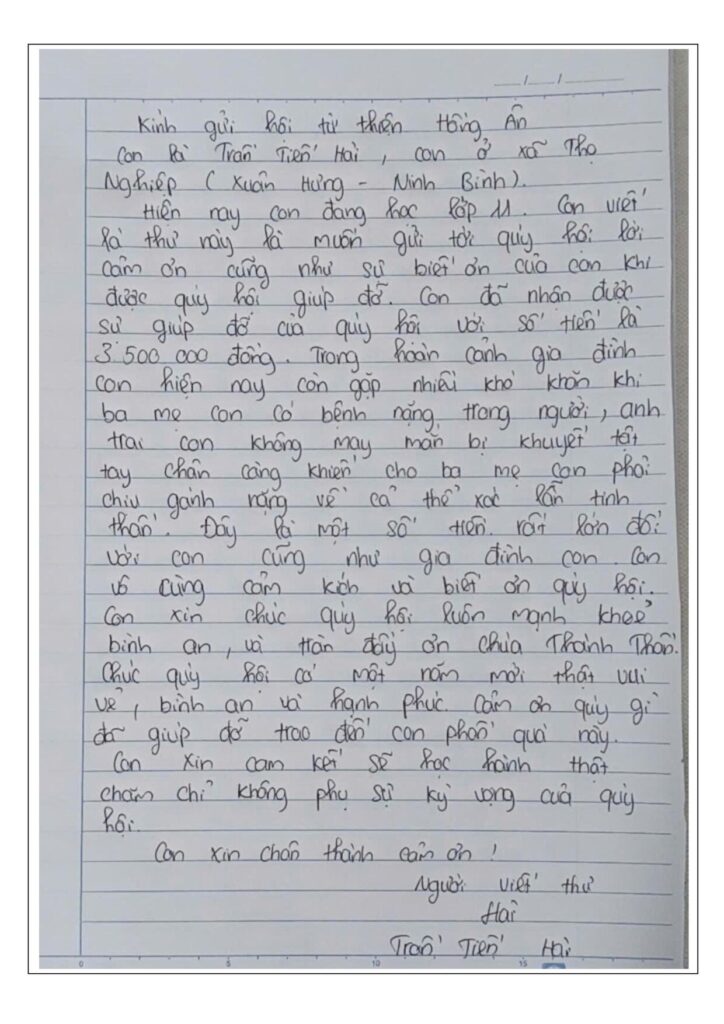 _/_/_
Kính gửi hội từ thiện Hồng Ân
Con là Trần Tiến Hải, con ở xã Thọ
Nghiệp (Xuân Hưng - Ninh Bình).
Hiện nay con đang học lớp 11. Con viết
lá thư này là muốn gửi tới quý hội lời
cảm ơn cũng như sự biết ơn của con khi
được quý hội giúp đỡ. Con đã nhận được
sự giúp đỡ của quý hội với số tiền là
3 500 000 đồng. Trong hoàn cảnh gia đình
con hiện nay còn gặp nhiều khó khăn khi
ba mẹ con có bệnh nặng trong người, anh
trai con không may mắn bị khuyết tật
tay chân càng khiến cho ba mẹ con phải
chịu gánh nặng về cả thể xác lẫn tinh
thần. Đây là một số tiền rất lớn đối
với con cũng như gia đình con. Con
vô cùng cảm kích và biết ơn quý hội.
Con xin chúc quý hội luôn mạnh khoẻ
bình an, và tràn đầy ơn chúa Thánh Thần.
Chúc quý hội có một năm mới thật vui
vẻ, bình an và hạnh phúc. Cảm ơn quý gì
đã giúp đỡ trao đến con phần quà này.
Con xin cam kết sẽ học hành thật
chăm chỉ không phụ sự kỳ vọng của quý
hội.
Con xin chân thành cảm ơn!
Người viết thư
Hải
Trần Tiến Hải
0 5 10 15